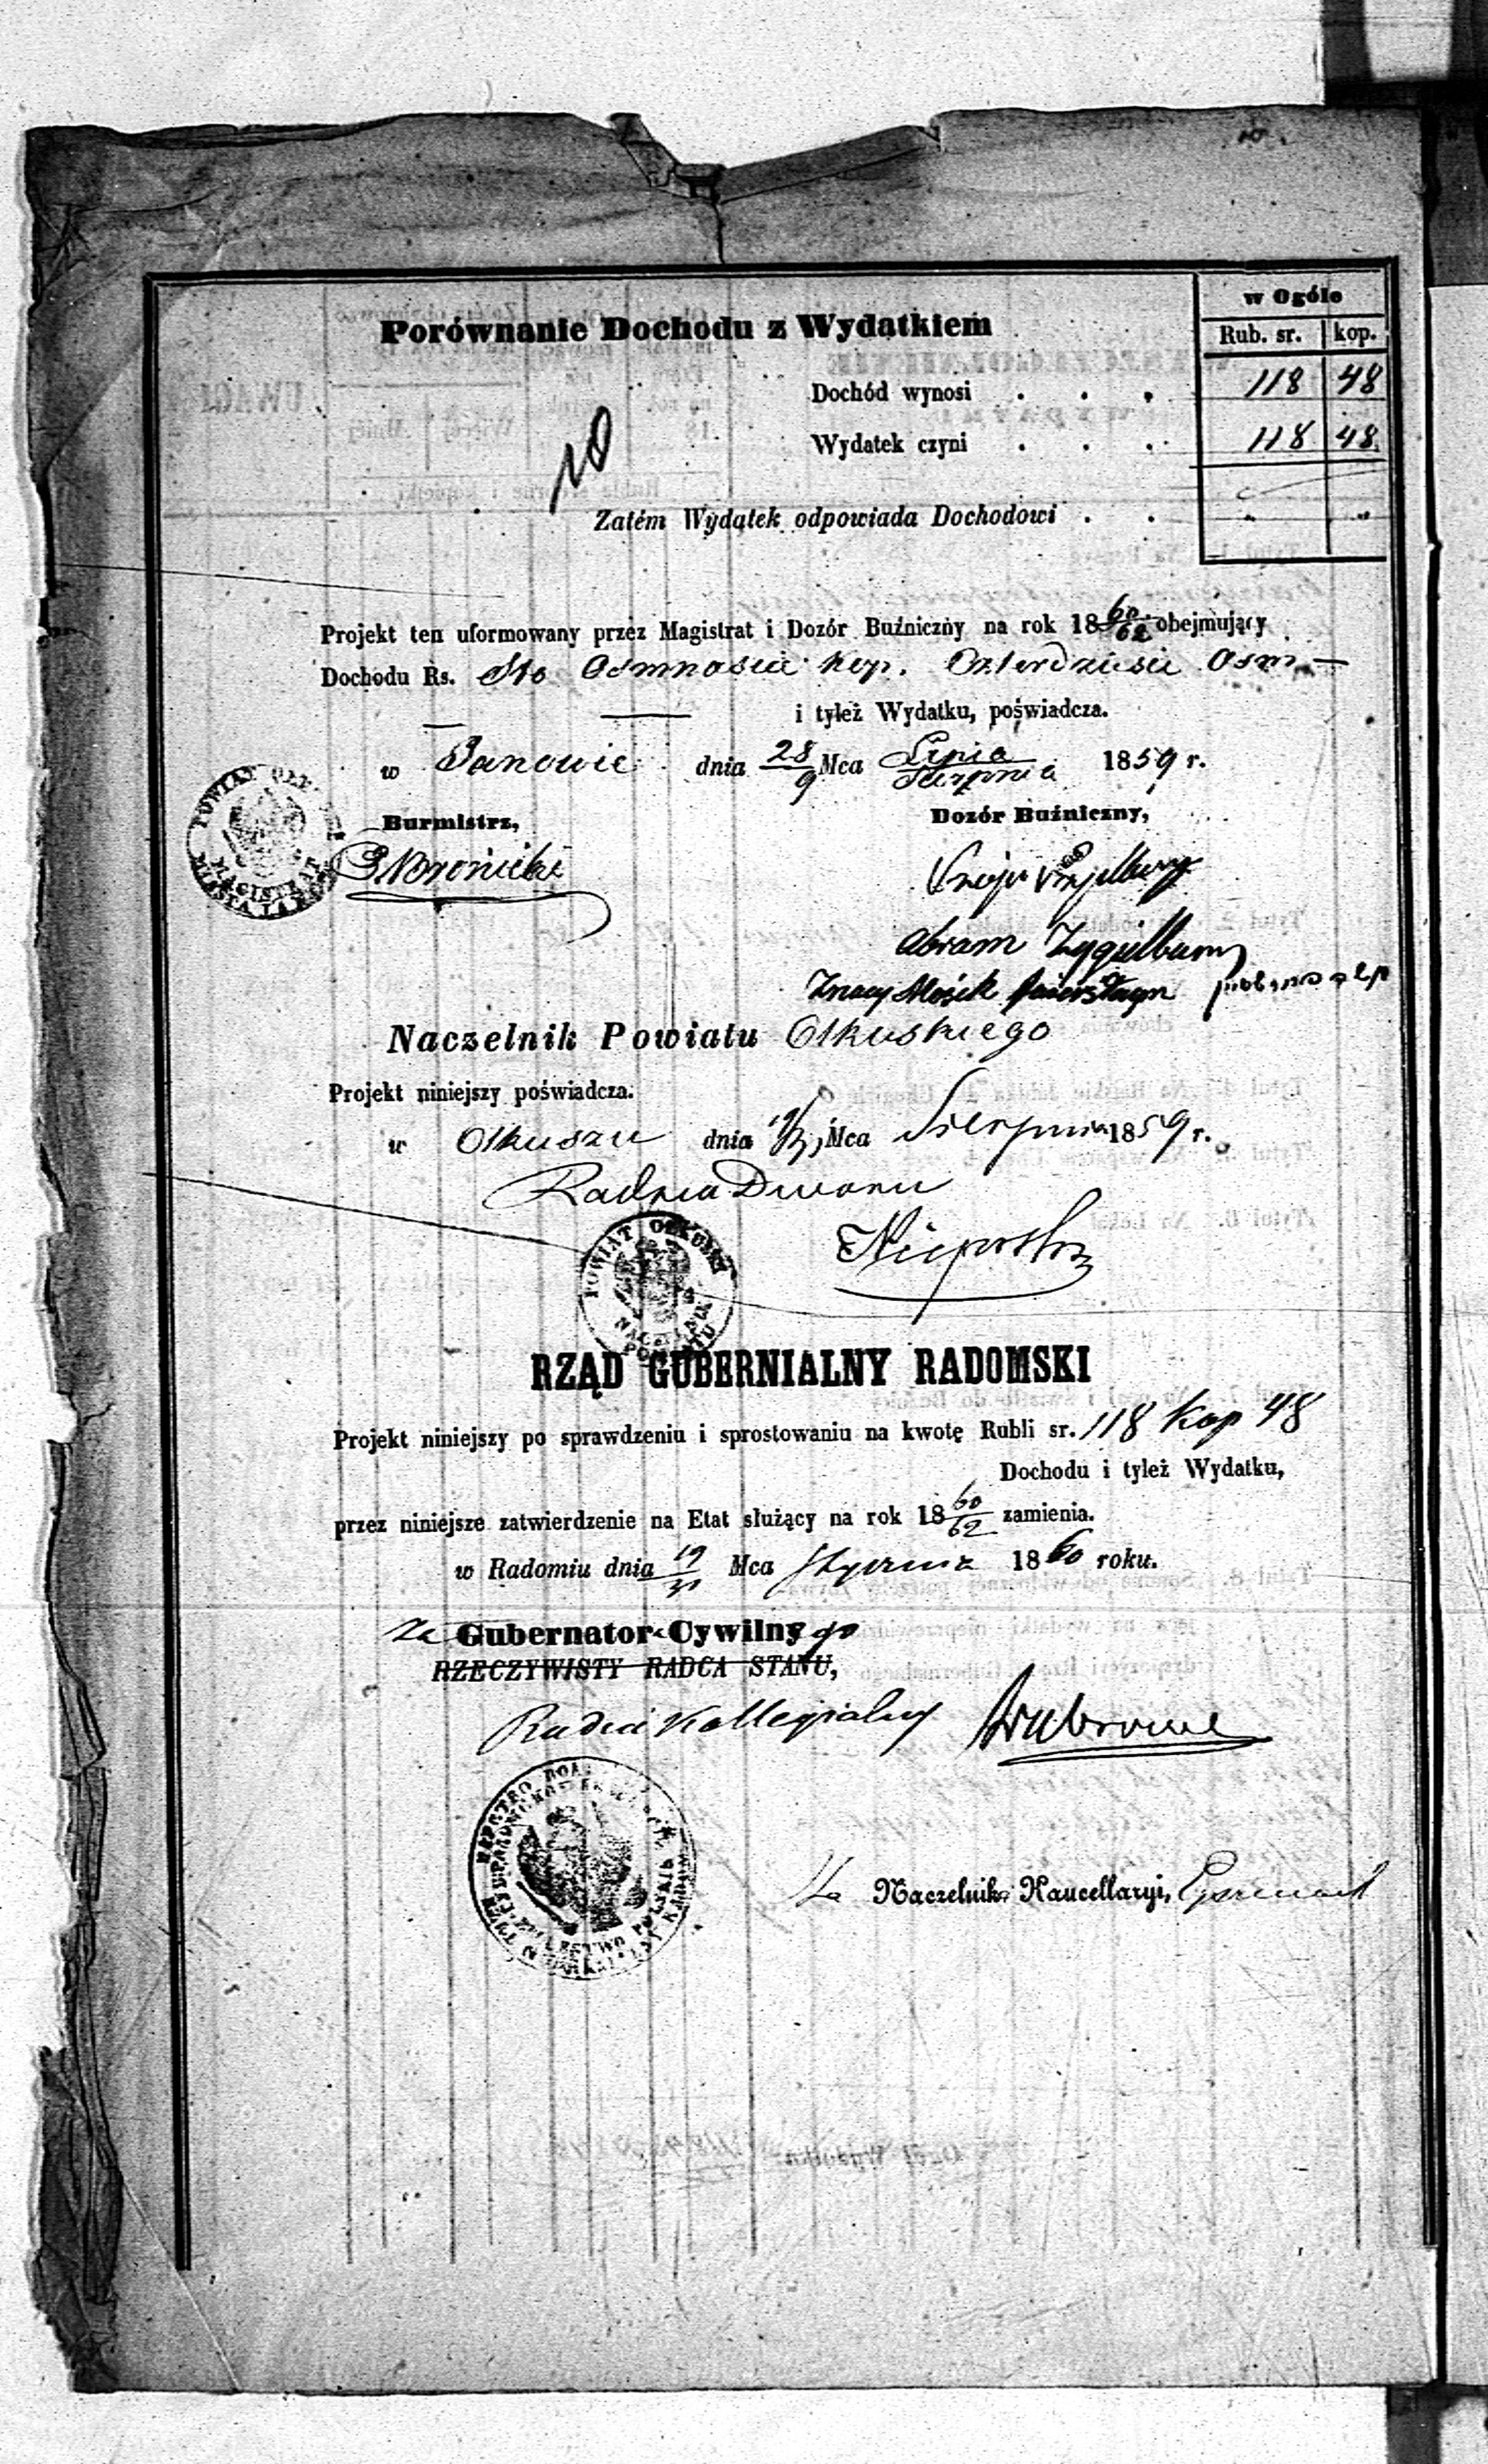 w Ogóle
Porównanie Dochodu z Wydatkiem
Rub. sr. kop.
Dochód wynosi . . . 118 48
Wydatek czyni . . . 118 48
10
Zatém Wydatek odpowiada Dochodowi . . " "
Projekt ten uformowany przez Magistrat i Dozór Buźniczny na rok 18 60/62 obejmujący
Dochodu Rs. Sto Osmnaście kop. Czterdzieści Osm —
i tyleż Wydatku, poświadcza.
w Janowie dnia 28/9 Mca Lipca/Sierpnia 1859 r.
Burmistrz,
Dozór Buźniczny,
Abram Zygielbaum
Znacy Mosiek
Naczelnik Powiatu Olkuskiego
Projekt niniejszy poświadcza.
w Olkuszu dnia Mca Sierpnia 1859 r.
Radca Dworu
POWIAT OLKUSKI
NACZELNIK POWIATU
RZĄD GUBERNIALNY RADOMSKI
Projekt niniejszy po sprawdzeniu i sprostowaniu na kwotę Rubli sr. 118 kop 48
Dochodu i tyleż Wydatku,
przez niniejsze zatwierdzenie na Etat służący na rok 18 60/62 zamienia.
w Radomiu dnia 19/31 Mca Stycznia 1860 roku.
Za Gubernatora Cywilnego
RZECZYWISTY RADCA STANU,
Radca Kollegialny
Za Naczelnika Kancellaryi,